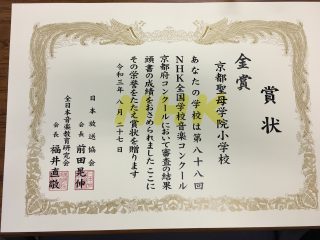 賞状
金賞
京都聖母学院小学校
あなたの学校は第八十八回
NHK全国学校音楽コンクール
京都府コンクールにおいて審査の結果
頭書の成績をおさめられました ここに
その栄誉をたたえ賞状を贈ります
令和三年 八月 二十七日
日本放送協会
会長 前田晃伸
全日本音楽教育研究会
会長 福井直敬